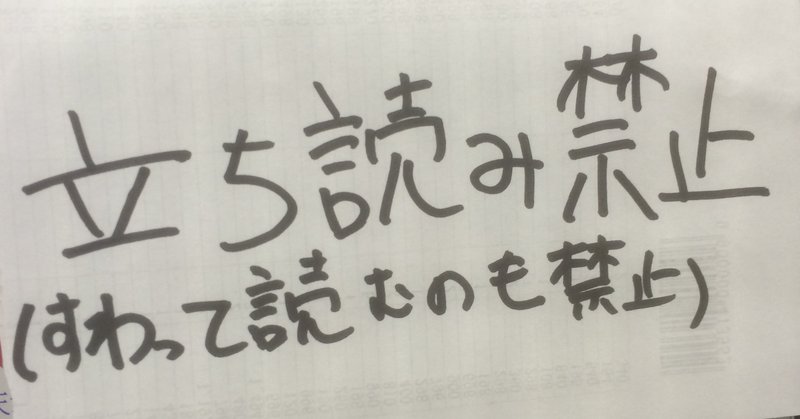 立ち読み禁止
(すわって読むのも禁止)